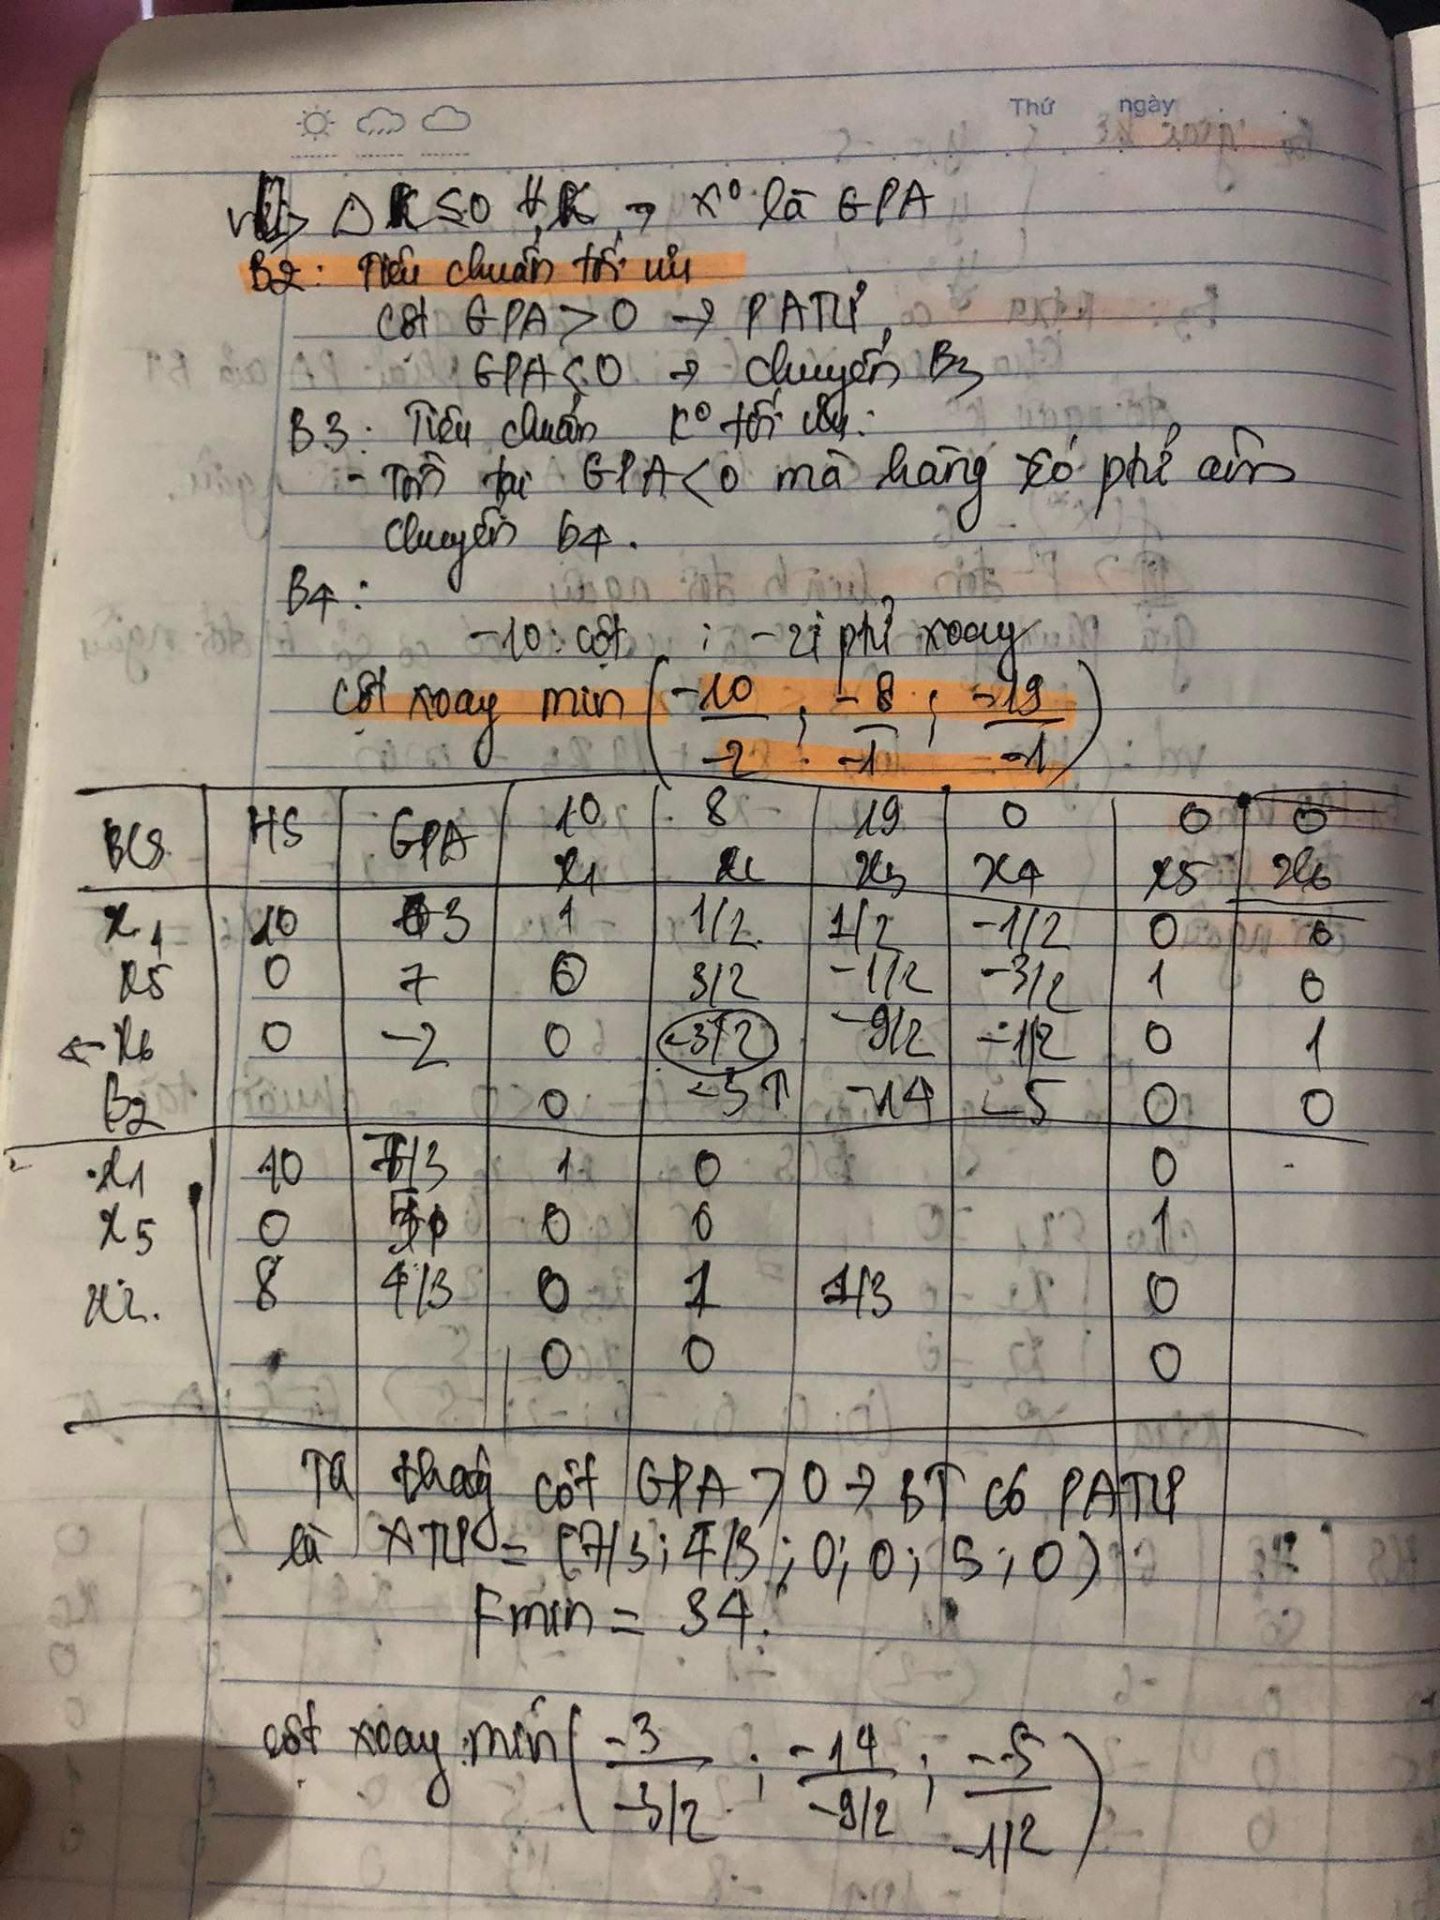 Thứ ngày
Δk ≤ 0 ∀k → x⁰ là GPA
B2: Tiêu chuẩn tối ưu
Cột GPA > 0 → PATƯ
GPA < 0 → chuyển B3
B3: Tiêu chuẩn x⁰ tối ưu:
- Tồn tại GPA < 0 mà hàng có ptử âm
chuyển B4.
B4:
-10: cột ; -2: ptử xoay
Cột xoay min (-10/-2 ; -8/-1 ; -19/-1)
HS GPA 10 8 19 0 0 0
x1 x2 x3 x4 x5 x6
x1 10 3 1 1/2 1/2 -1/2 0 0
x5 0 7 0 3/2 -1/2 -3/2 1 0
← x6 0 -2 0 -3/2 -9/2 -1/2 0 1
B2 0 -3↑ -14 -5 0 0
x1 10 7/3 1 0 0
x5 0 5 0 0 1
x2 8 4/3 0 1 1/3 0
0 0 0
Ta thấy cột GPA > 0 → BT có PATƯ
là XTƯ = (7/3; 4/3; 0; 0; 5; 0)
Fmin = 34.
cột xoay min (-3/-3/2 ; -14/-9/2 ; -5/-1/2)